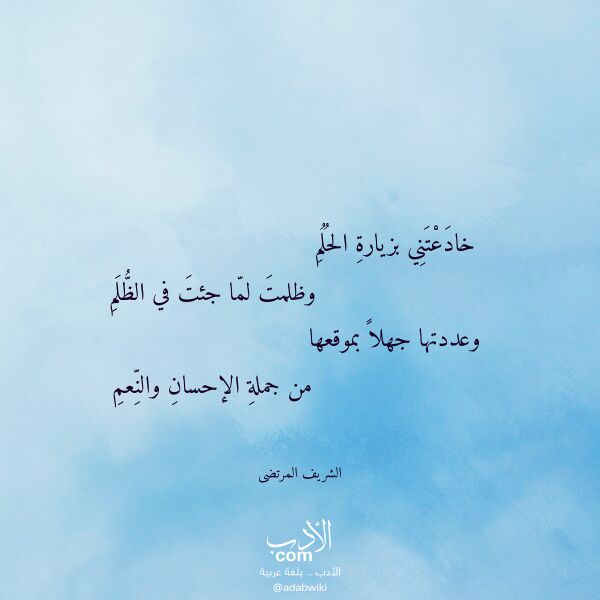 خادَعْتَنِي بزيارةِ الحُلُمِ
وظلمتَ لمّا جئتَ في الظُّلَمِ
وعددتها جهلاً بموقعها
من جملةِ الإحسانِ والنِّعمِ
الشريف المرتضى
الأدب
com
الأدب .. بلغة عربية
@adabwiki